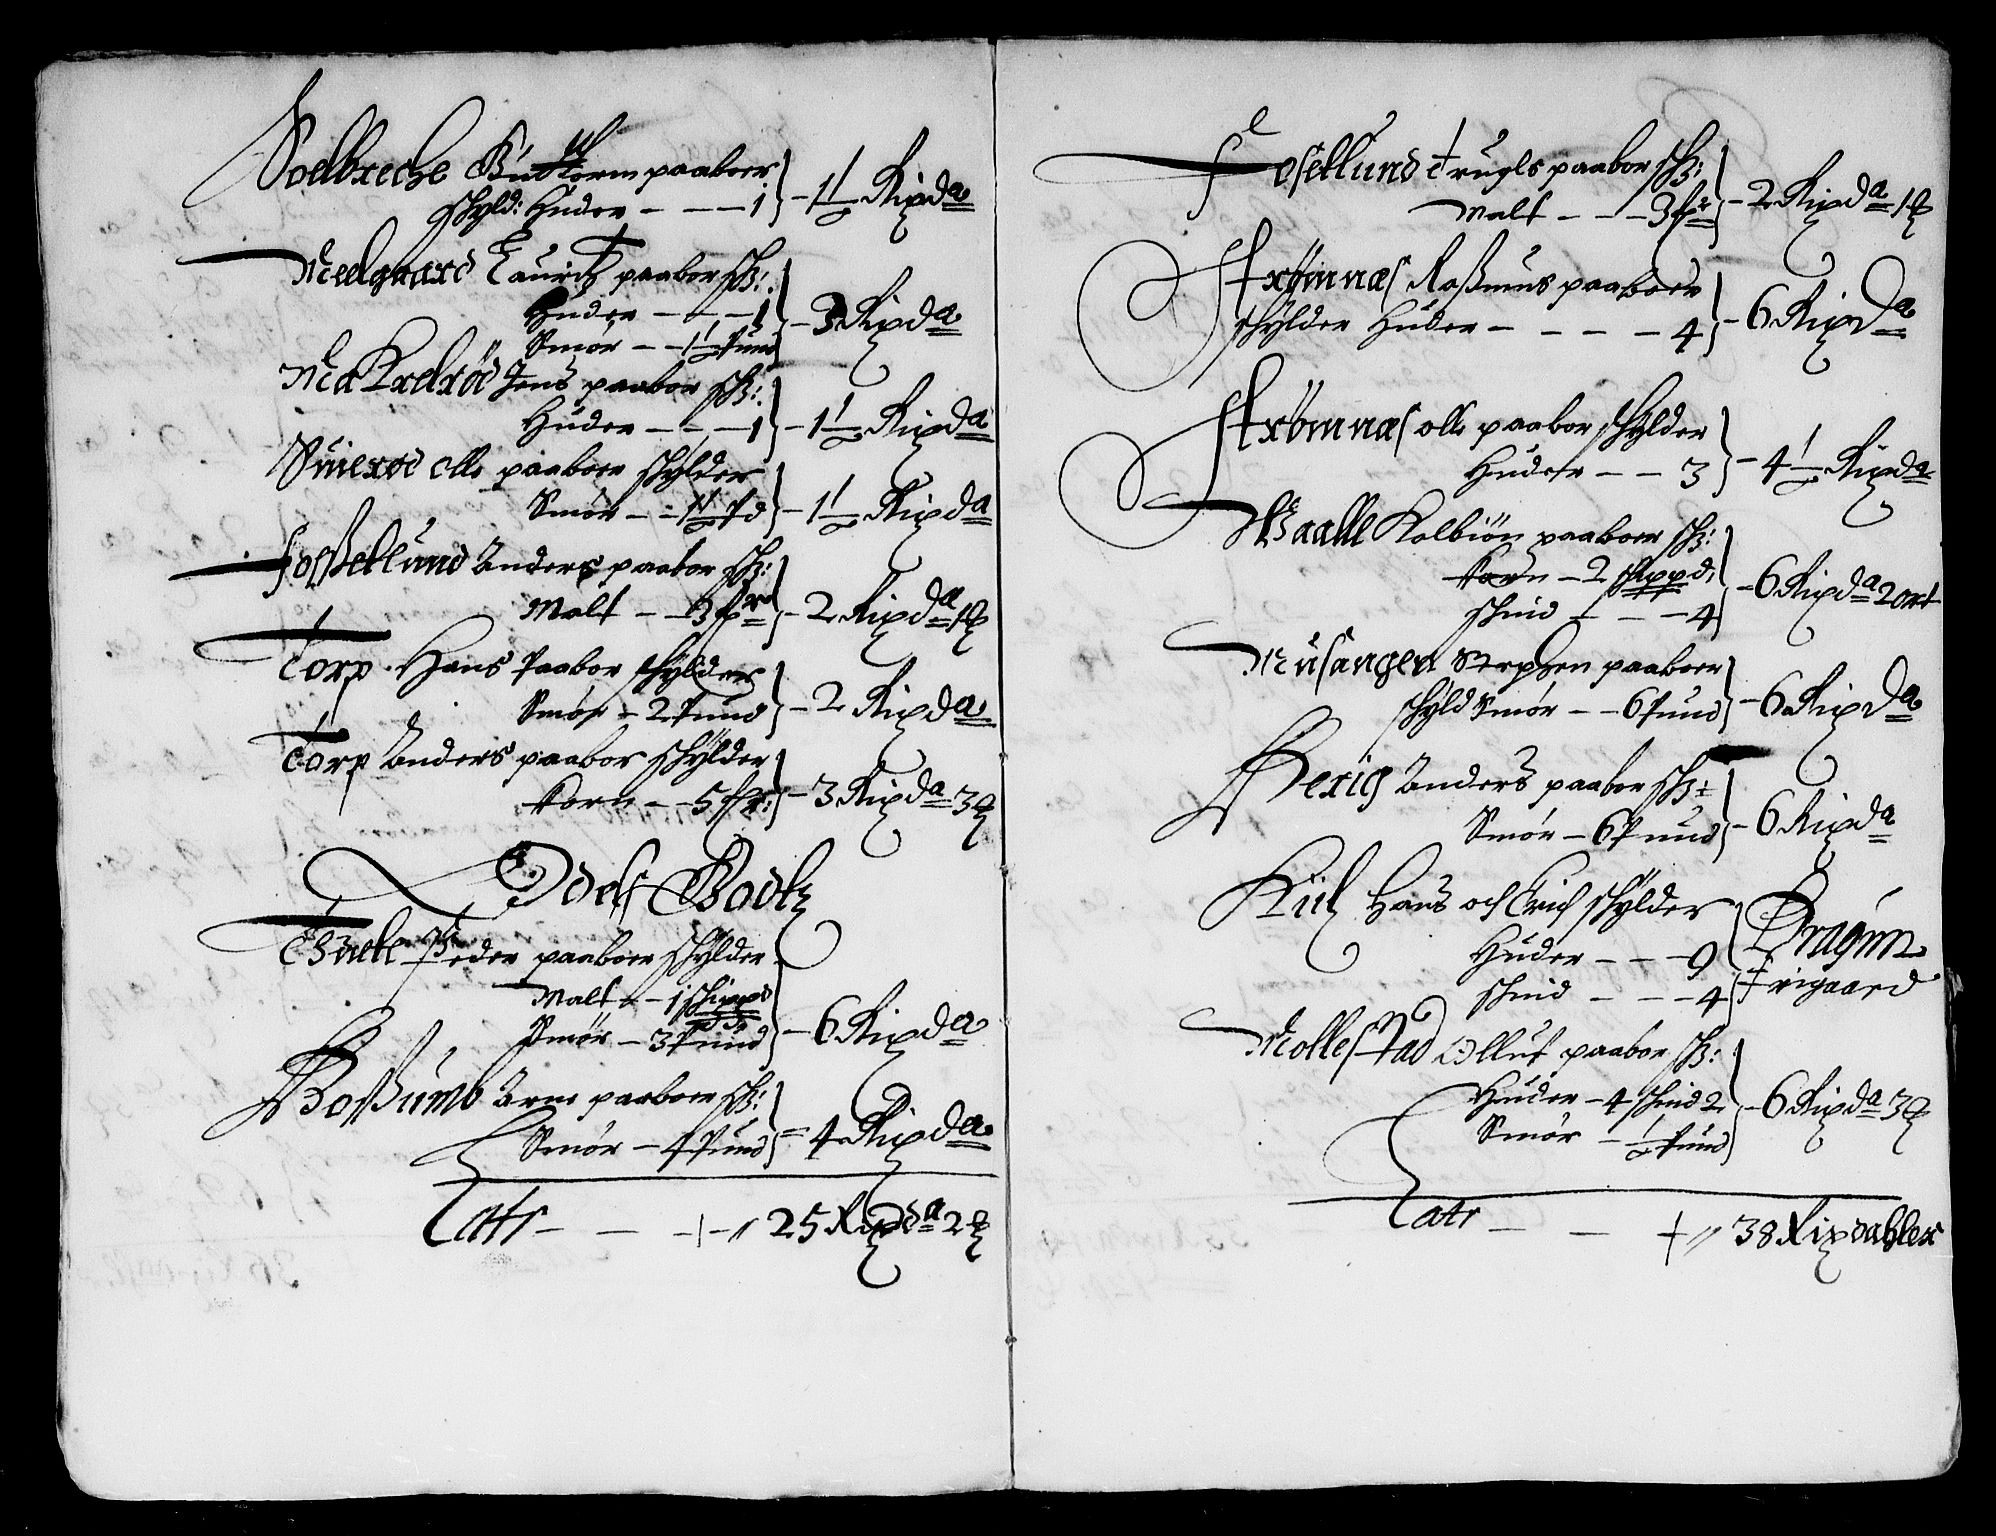 Soelbreche Guttorm paaboer
schyld: Huder - - - 1 - 1½ Rixda
Melgaard Lauritz paabor sch:
Huder - - - 1
Smør - - 1½ Pund - 3 Rixda
Makrelrød Jens paabor sch:
Huder - - - 1 - 1½ Rixda
Suierød olle paaboer schylder
Smør - - 1½ Pd - 1½ Rixda
Fosßellund Anders paabor sch:
Malt - - 3 - 2 Rixda 1
Torp Hans Paabor schylder
Smør - 2 Pund - 2 Rixda
Torp Anders paabor schylder
Korn - - 5 - 3 Rixda 3
Odels Godtz
Peder paaboer schylder
Malt - - 1 schippd
Smør - 3 Pund - 6 Rixda
Boßumb Arne paaboer sch:
Smør - 4 Pund - 4 Rixda
Latr - - - 25 Rixda 2
Fosellund Trugls paabor sch:
Malt - - - 3 - 2 Rixda 1
Strømnæs Raßmus paaboer
schylder Huder - - - - 4 - 6 Rixda
Strømnæs olle paabor schylder
Huder - - 3 - 4½ Rixda
Waalle Kolbiøn paaboer sch:
Korn - 2 schippd,
schind - - - 4 - 6 Rixda 2 ort
Musangen Stephen paaboer
schyld Smør - - 6 Pund - 6 Rixda
Berich Anders paabor sch:
Smør - 6 Pund - 6 Rixda
Kiil Hans och Erich schylder
Huder - - - 9 Dragun
schind - - - 4 Frigaard
Mollestad Olluf paabor sch:
Huder - 4 schind 2
Smør - ½ Pund - 6 Rixda 3
Latr - - 38 Rixdahler